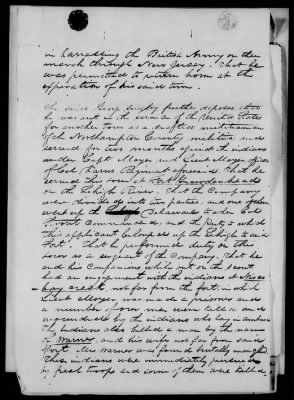 in harrassing the British Army on their
march through New Jersey. That he
was permitted to return home at the
expiration of his said term.
The said George further deposes that
he was out in the service of the United States
for another tour as a drafted militiaman
of the Northampton County militia and
served for two months against the indians
under Capt Moyer and Lieut Moyer, officers
of Col. Regiment aforesaid that he
served this tour at Fort
on the Lehigh River. That the Company
were divided into two parties, and one of them
went up the Delaware to where Col
commanded, and the Rest to which
this applicant belonged up the Lehigh to said
Fort. That he performed duty on this
tour as a sergeant of the Company. That he
and his Companions whilst out on the scout
had an engagement with the indians at
creek, not far from the fort, in which
Lieut Moyer was made a prisoner and
a number of our men were killed and
wounded by the indians who lay in ambush
The Indians also killed a man by the name
of and his wife not far from said
Fort. Mrs was found brutally mangled
These indians were immediately pursued
by fresh troops and some of them were killed